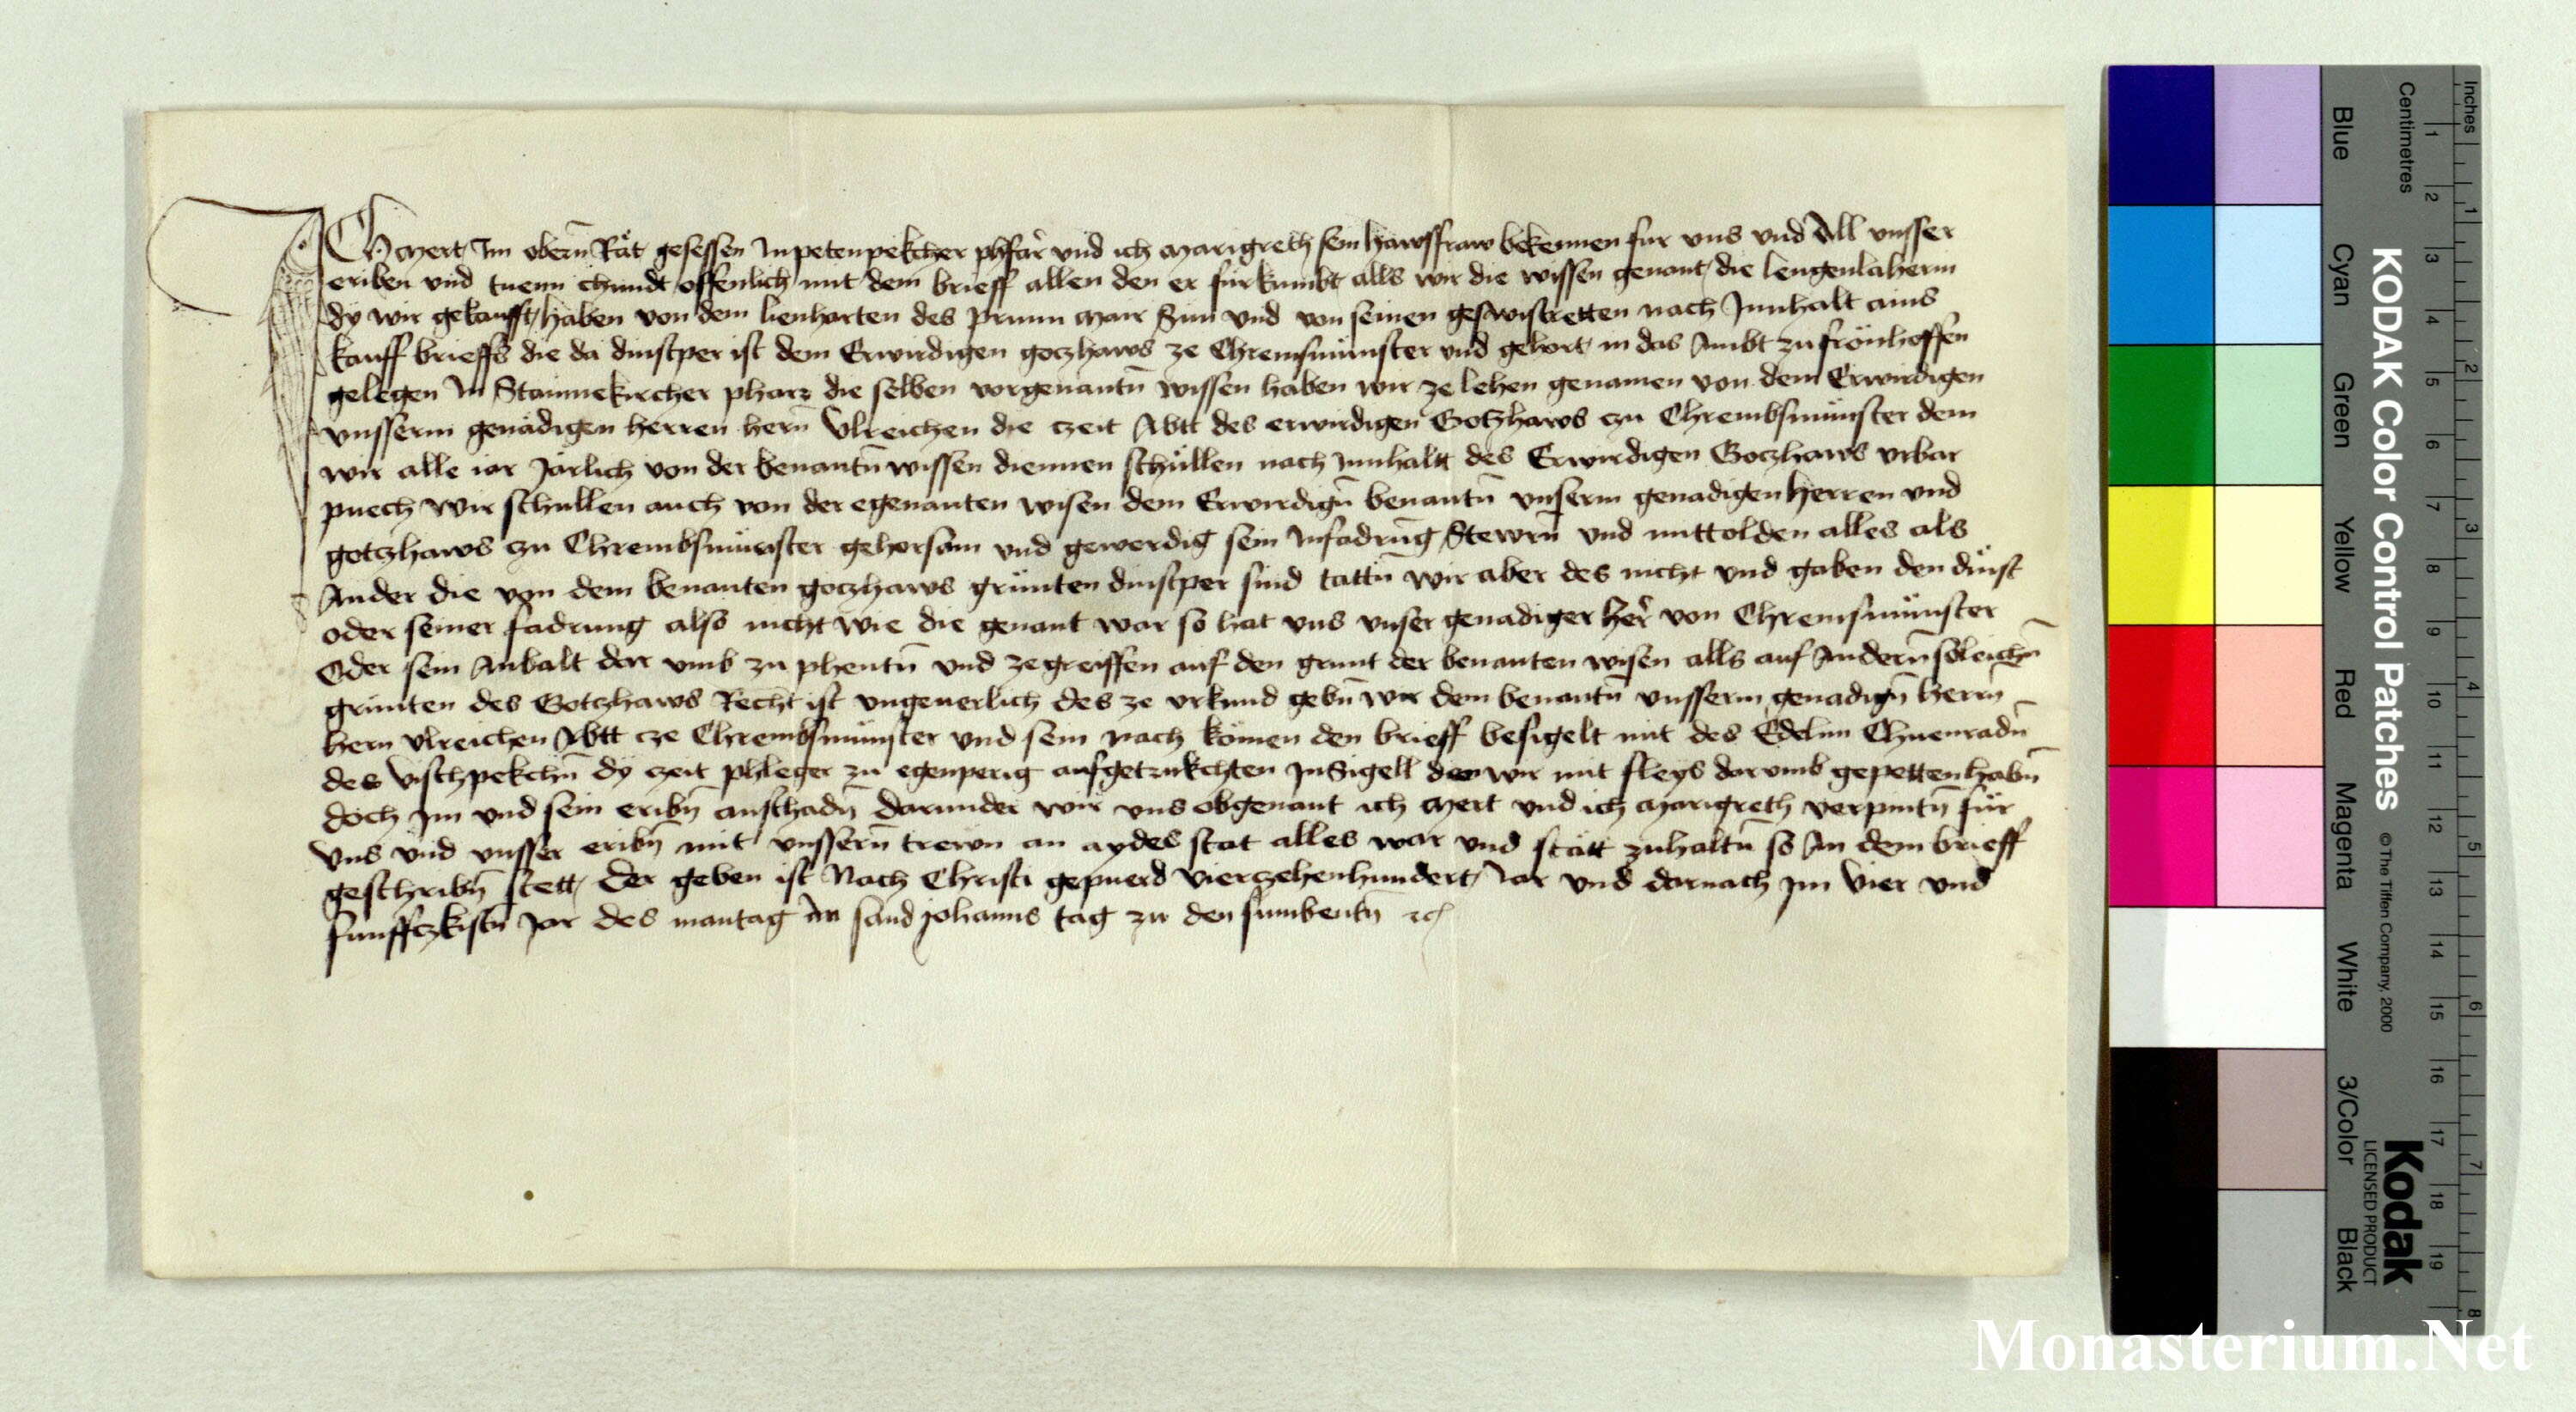 Ich Mert Im obern̄ Rät gesessen In petenpekcher phfar̄ vnd ich Marigreth sein hawsfraw bekennen fur vns vnd All vnsser
eriben vnd tuenn chundt offenlich mit dem brieff allen den er fürkumbt alls wir die wissen genant die lengenlaherin
dy wir gekaufft haben von dem lienharten des prunn mair Sun vnd von seinen geswistretten nach Innhalt ains
kauff brieffs die da dinstper ist dem Erwirdigen goczhaws ze Chremsmünster vnd gehort in das Ambt zu frönhoffen
gelegen In Stainnekircher pharr die selben vorgenantn̄ wissen haben wir ze lehen genamen von dem Erwirdigen
vnsserm genädigen herren hern̄ Vlreichen die czeit Abtt des erwirdigen Gotzhaws czu Chrembsmünster dem
wir alle iar Järlich von der benantn̄ wissen diennen schüllen nach Innhaltt des Erwirdigen Goczhaws vrbar
puech wir schullen auch von der egenanten wisen dem Erwirdign̄ benantn̄ vnserm genadigen herren vnd
gotzhaws czu Chrembsmünster gehorsam vnd gewerdig sein Infadrūg Stewrn̄ vnd mittolden alles als
Ander die von dem benanten goczhaws grünten dinstper sind tättn̄ wir aber des nicht vnd gaben den dinst
oder seiner fadrung also nicht wie die genant war so hat vns vnser genadiger her̄ von Chremsmünster
Oder sein Anbalt dar vmb zu phentn̄ vnd ze greiffen auf den grunt der benanten wisen alls auf Andern̄ söleichn̄
grünten des Gotzhaws Recht ist vngeuerlich des ze vrkund gebn̄ wir dem benantn̄ vnsserm genadign̄ herrn̄
hern vlreichen Abtt cze Chrembsmünster vnd sein nach kömen den brieff besigelt mit des Edelnn Chuenradn̄
des vischpekchn̄ dy czeit phleger zu egenperig aufgetrukchten InSigell den wir mit fleys darvmb gepetten habn̄
doch Im vnd sein eribn̄ anschadn̄ darunder wir vns obgenant ich Mert vnd ich Marigreth verpintn̄ für
vns vnd vnsser eribn̄ mit vnssern̄ trewn an aydes stat alles war vnd stätt zuhaltn̄ so An dem brieff
geschribn̄ stett Der geben ist Nach Christi gepuerd Vierczehenhundert Iar vnd darnach Im Vier vnd
funffczkistn̄ Jar des mantag An sand Johanns tag zu den sunbentn̄ etc
KODAK Color Control Patches
© The Tiffen Company, 2000
Kodak
LICENSED PRODUCT
Inches
Centimetres
1 2 3 4 5 6 7 8
1 2 3 4 5 6 7 8 9 10 11 12 13 14 15 16 17 18 19
Blue Cyan Green Yellow Red Magenta White 3/Color Black
Monasterium.Net